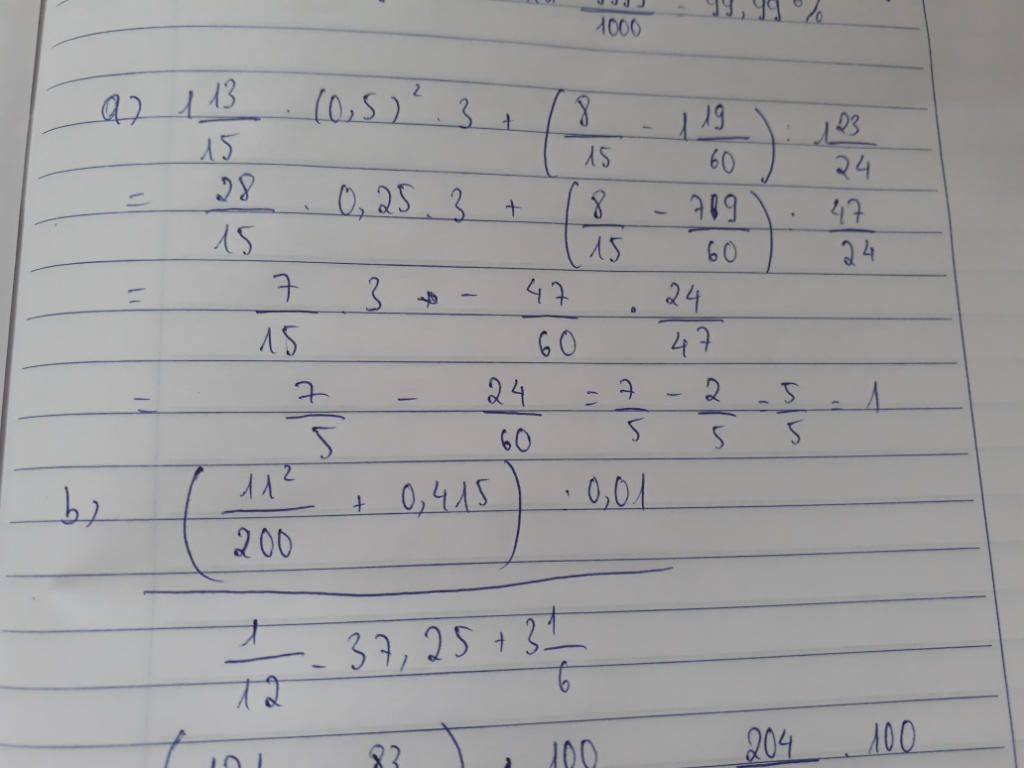 1000 = 99,99%
a) 1 13/15 · (0,5)² · 3 + (8/15 - 1 19/60) : 1 23/24
= 28/15 · 0,25 · 3 + (8/15 - 79/60) : 47/24
= 7/15 · 3 - 47/60 · 24/47
= 7/5 - 24/60 = 7/5 - 2/5 = 5/5 = 1
b) (11²/200 + 0,415) · 0,01
1/12 - 37,25 + 3 1/6
83 · 100 204 · 100